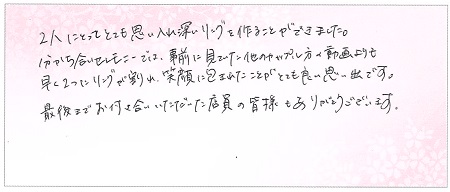 2人にとってとても思い入れ深いリングを作ることができました。
分かち合いセレモニーでは、事前に見ていた他のカップル方々動画よりも
早く2つにリングが割れ、笑顔に包まれたことがとても良い思い出です。
最後までお付き合いいただいた店員の皆様もありがとうございます。